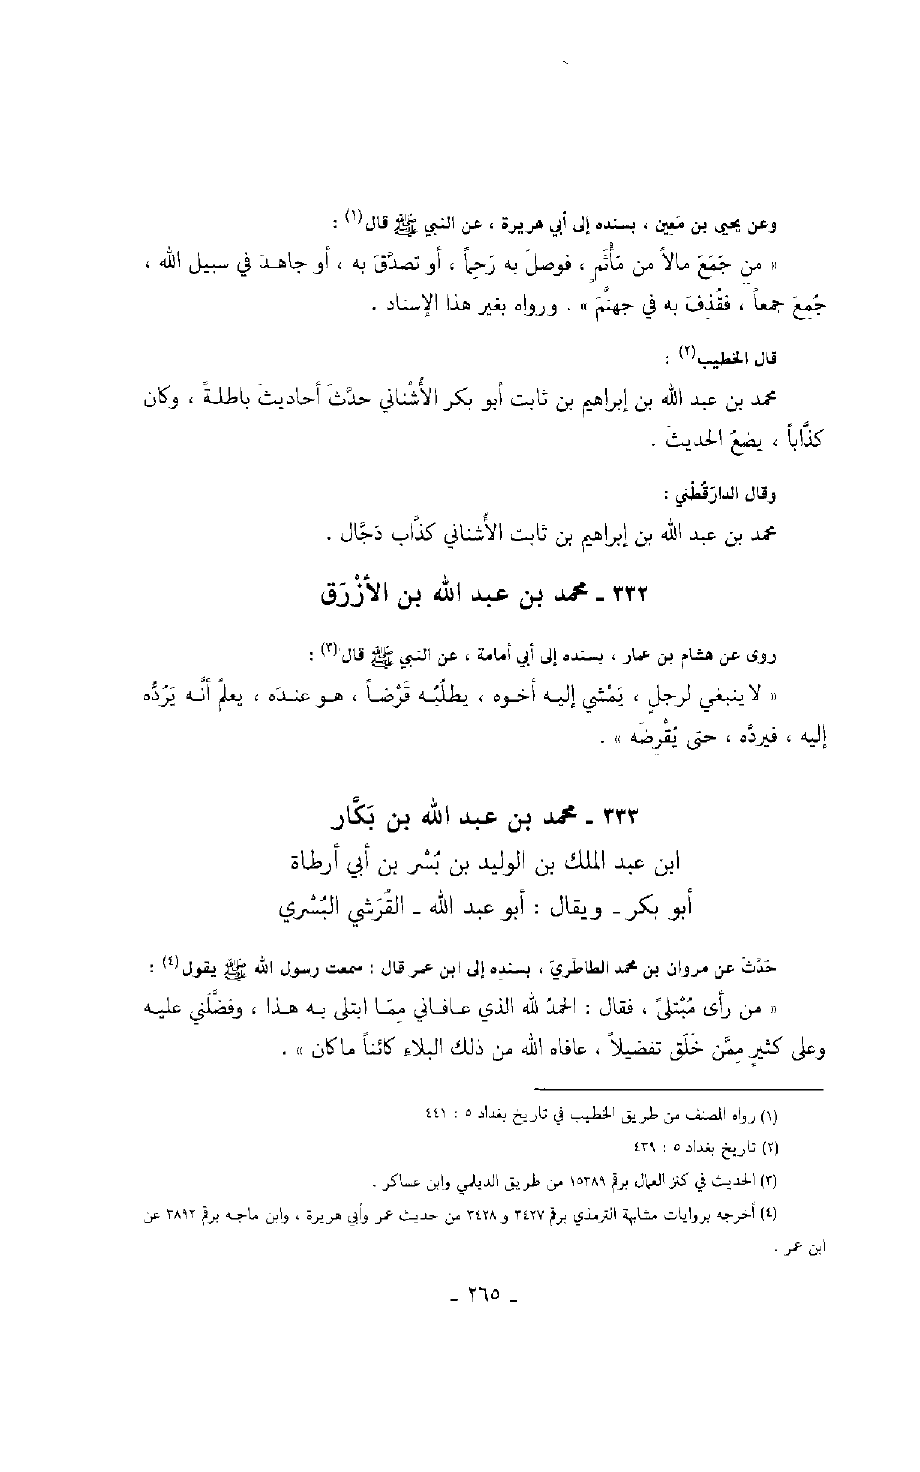 وعن يحيى بن مَعين ، بسنده إلى أبي هريرة ، عن النبي ﷺ قال(١) :
« من جَمَعَ مالاً من مَأْثَمٍ ، فوصلَ به رَحِماً ، أو تصدَّقَ به ، أو جاهـدَ في سبيل الله ،
جُمِعَ جمعاً ، فقُذِفَ به في جهنَّمَ » . ورواه بغير هذا الإسناد .
قال الخطيب(٢) :
محمد بن عبد الله بن إبراهيم بن ثابت أبو بكر الأُشْناني حدَّثَ أحاديثَ باطلـةً ، وكان
كذَّاباً ، يضعُ الحديثَ .
وقال الدارَقُطْني :
محمد بن عبد الله بن إبراهيم بن ثابت الأُشناني كذَّاب دَجَّال .
٣٣٢ ـ محمد بن عبد الله بن الأَزْرَق
روى عن هشام بن عمار ، بسنده إلى أبي أمامة ، عن النبي ﷺ قال(٣) :
« لا ينبغي لرجلٍ ، يَمْشي إليـه أخـوه ، يطلُبُـه قَرْضـاً ، هـو عنـدَه ، يعلمُ أنَّـه يَرُدُّه
إليه ، فيردَّه ، حتى يُقْرِضَه » .
٣٣٣ ـ محمد بن عبد الله بن بَكَّار
ابن عبد الملك بن الوليد بن بُسْر بن أبي أرطاة
أبو بكر ـ ويقال : أبو عبد الله ـ القُرَشي البُسْري
حَدَّثَ عن مروان بن محمد الطاطَريّ ، بسنده إلى ابن عمر قال : سمعت رسول الله ﷺ يقول(٤) :
« من رأى مُبْتلىً ، فقال : الحمدُ لله الذي عـافـاني ممّـا ابتلى بـه هـذا ، وفضَّلَني عليـه
وعلى كثيرٍ مِمَّن خَلَق تفضيلاً ، عافاه الله من ذلك البلاء كائناً ماكان » .
(١) رواه المصنف من طريق الخطيب في تاريخ بغداد ٥ : ٤٤١
(٢) تاريخ بغداد ٥ : ٤٣٩
(٣) الحديث في كنز العمال برقم ١٥٣٨٩ من طريق الديلمي وابن عساكر .
(٤) أخرجه بروايات مشابهة الترمذي برقم ٣٤٢٧ و ٣٤٢٨ من حديث عمر وأبي هريرة ، وابن ماجـه برقم ٣٨٩٢ عن
ابن عمر .
ـ ٢٦٥ ـ